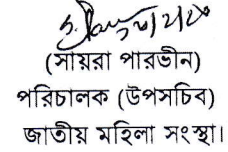 (সায়রা পারভীন)
পরিচালক (উপসচিব)
জাতীয় মহিলা সংস্থা।